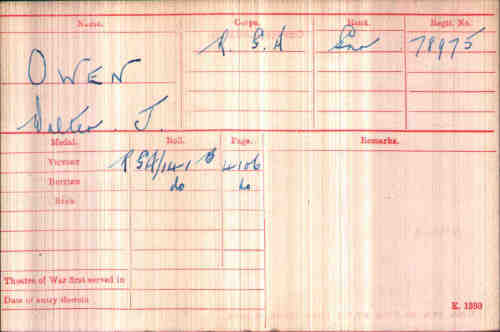 Name. Corps. Rank. Regtl. No.
OWEN R. G. A Gnr 78975
Walter. J.
Medal. Roll. Page. Remarks.
VICTORY RGA/141 B 4106
BRITISH do do
STAR
Theatre of War first served in
Date of entry therein
K. 1380